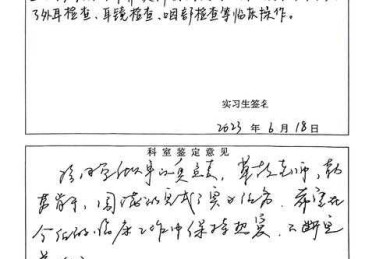 了外耳检查、耳镜检查、咽部检查等临床操作。
实习生签名
2023 年 6 月 18 日
科室鉴定意见
该同学认真负责,尊敬老师,勤
,圆满的完成了实习任务。希望在
今后的临床工作中保持热爱,不断完